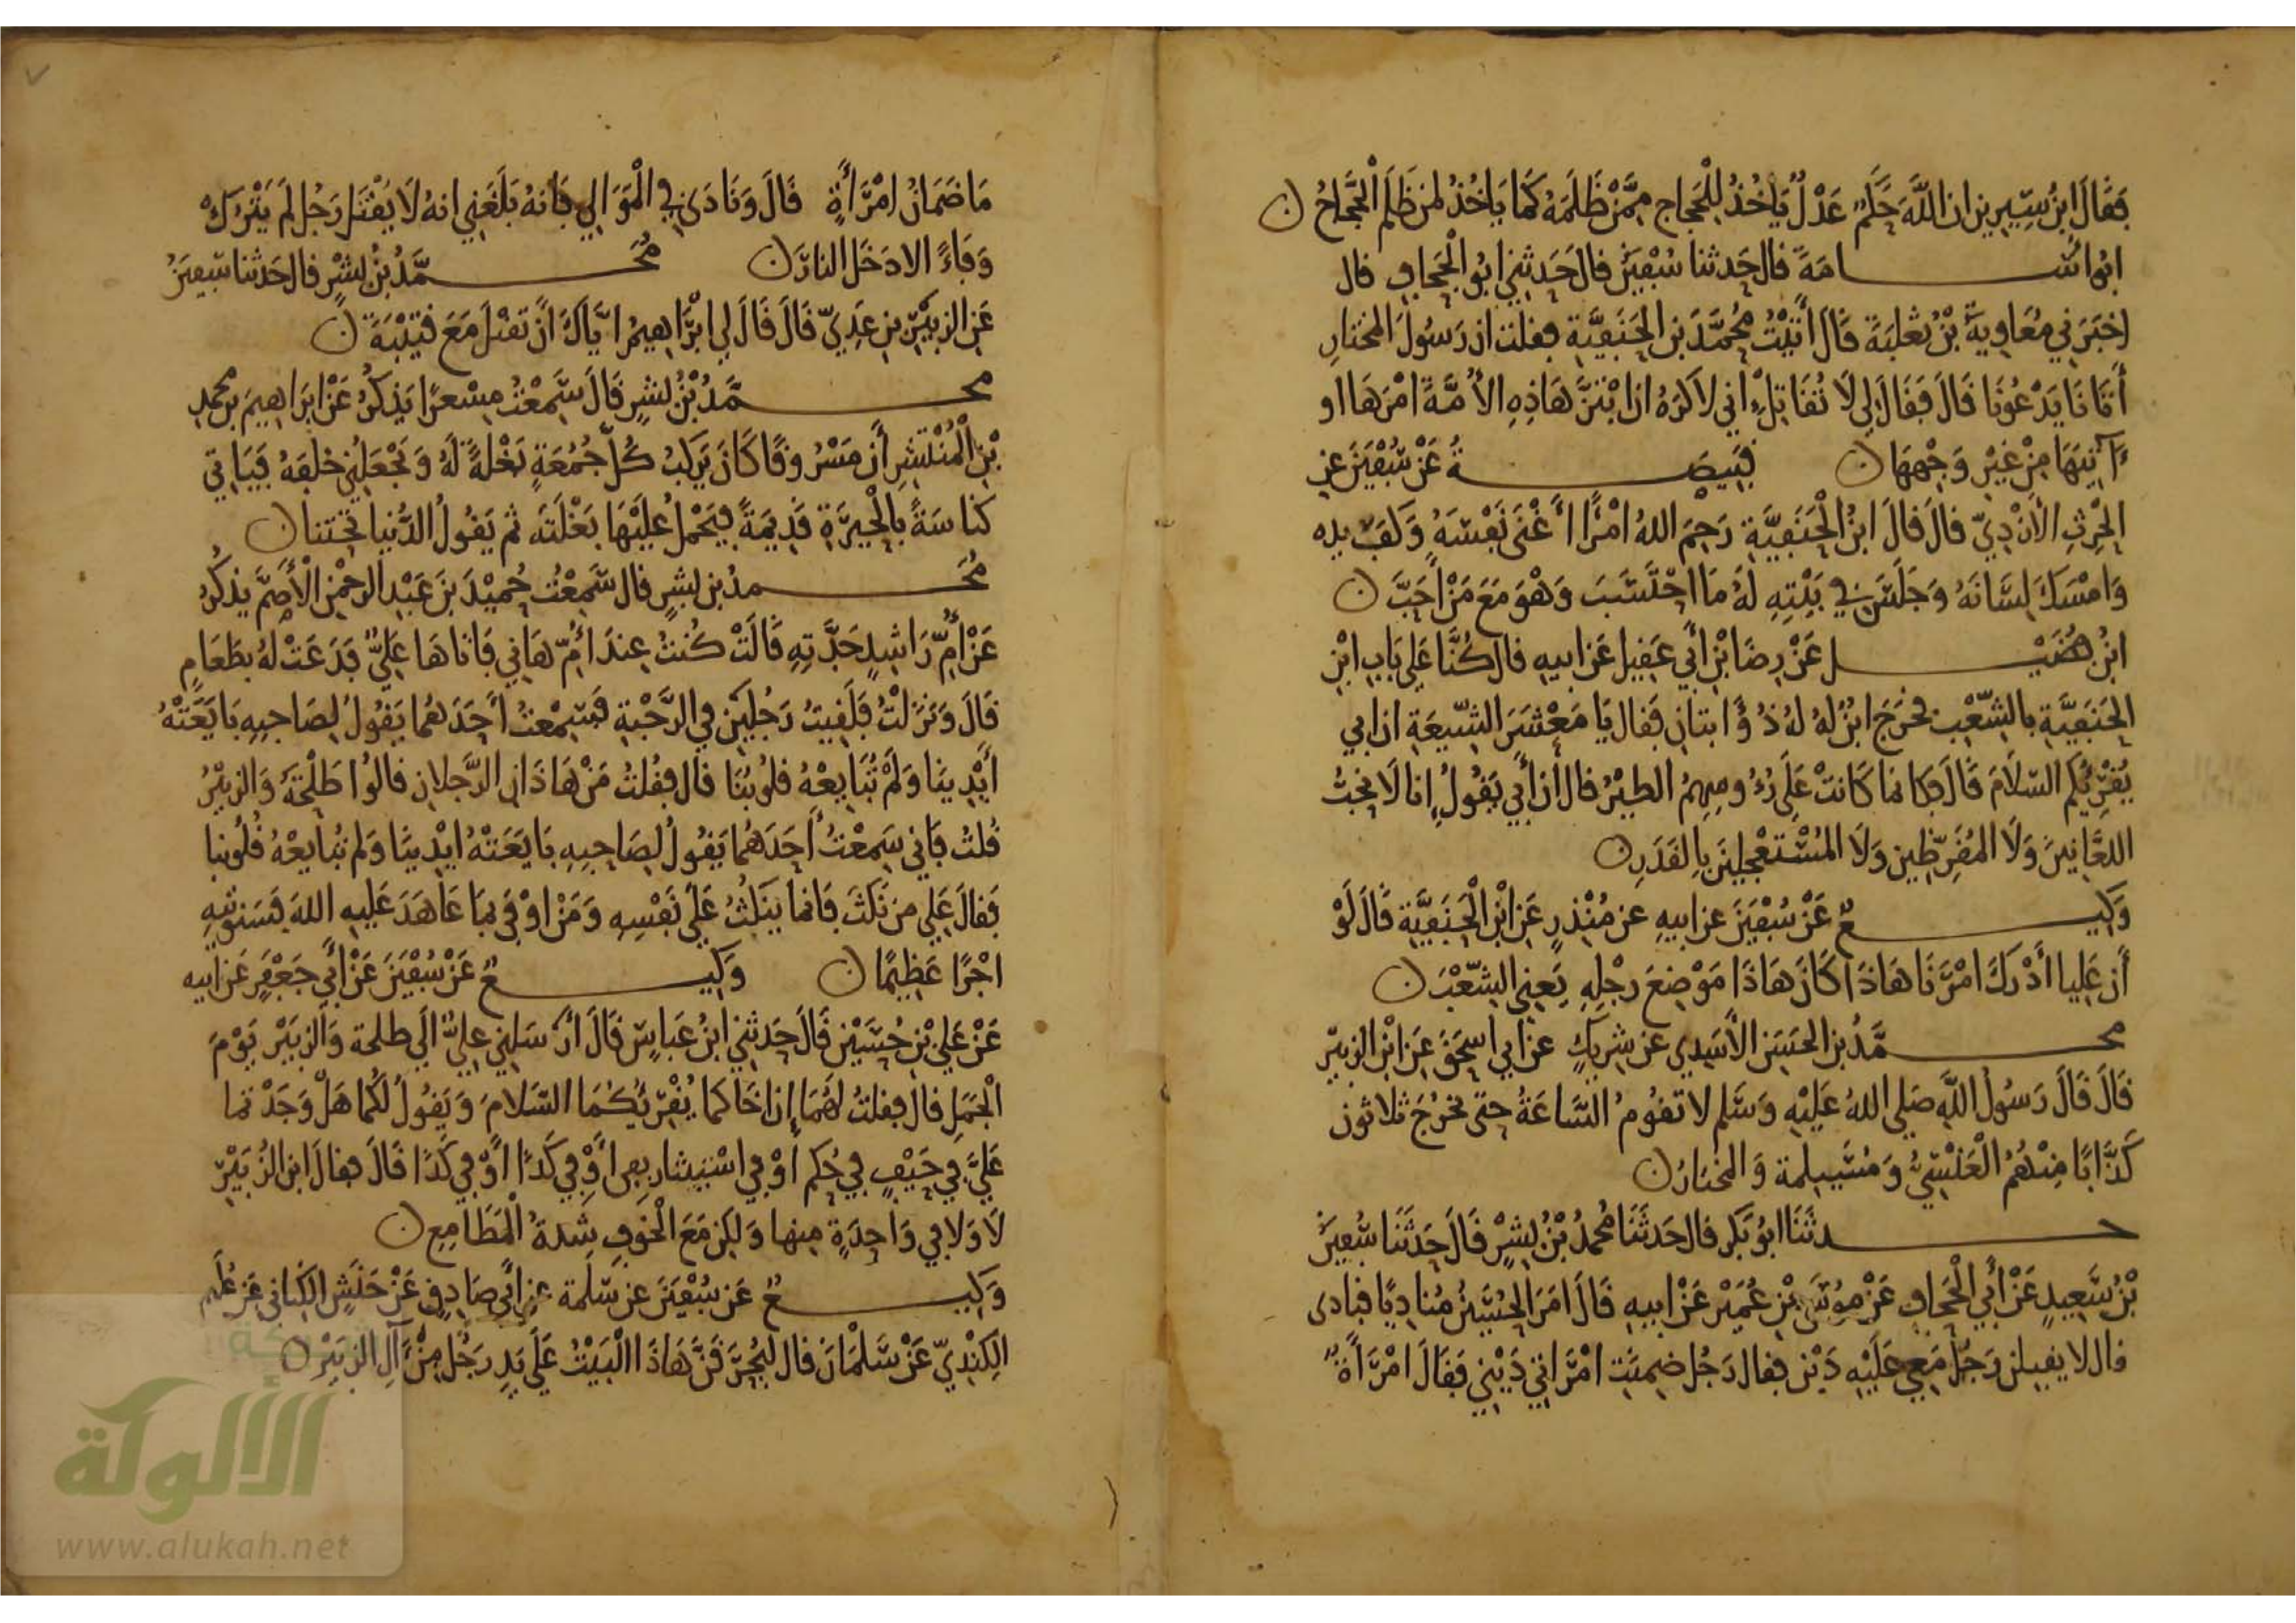 فَقَالَ ابنُ سِيرين ان اللَّهَ حَكَمٌ عَدْلٌ يَاخُذُ لِلْحَجاج مِمَّنْ ظَلَمَهُ كَمَا يَاخُذُ لمن ظَلَمَ الْحَجَّاجُ ن
ابُو اُسَــامَةَ قال حَدثنا سُفْيَنُ قال حَدثنِي ابُو الْجَحافِ قال
اخبَرَنِي مُعَاوِيَةُ بْنُ ثعْلبَةَ قَالَ أَتَيْتُ مُحمَّدَ بنَ الحَنَفِيَّةِ فقلت ان رَسُولَ المختارِ
أَتَانَا يَدْعُونَا قَالَ فَقَالَ لِي لَا تُقَاتِلْ اني لاَكرَهُ ان ابْتَزَّ هَاذِهِ الأُمَّةَ امْرَهَا او
ءَاتِيَهَا مِنْ غَيْرِ وَجْهِهَا ن قَبِيصَــةُ عَنْ سُفْيَنَ عن
الحٰرِثِ الْأَزْدِيّ قالَ قالَ ابنُ الْحَنَفِيَّةِ رَحِمَ اللهُ امْرًأ أَغْنَى نَفْسَهُ وَكَفَّ يده
وَامْسَكَ لِسَانَهُ وَجَلَسَ فِي بَيْتِهِ لَهُ مَا احْتَسَبَ وَهْوَ مَعَ مَنْ احَبَّ ن
ابْنُ فُضَيْــل عَنْ رِضَا بْنِ أبِي عَقِيل عَن ابيهِ قال كُنَّا عَلى بَابِ ابْنِ
الحَنَفِيَّةِ بالشّعْبِ فخرَجَ ابْنٌ لهُ لهُ ذُؤَابتانِ فَقال يَا مَعْشَرَ الشّيعَةِ ان ابي
يُقْرِيكُم السّلامَ قَالَ فكانما كَانتْ عَلَى رُءُوسِهِمُ الطيْرُ قال ان أبي يَقُولُ إنا لَا نحِبُّ
اللعَّانِينَ وَلَا المُفَرِّطِين وَلَا المُسْتَعْجِلِينَ بِالقَدَرِ ن
وَكِيــعٌ عَنْ سُفْيَنَ عن ابيهِ عن مُنْذِرٍ عَنِ ابْنِ الْحَنَفِيَّةِ قَالَ لَوْ
أَن عَلِيا أَدْرَكَ امْرَنَا هَاذَا كَانَ هَاذَا مَوْضِعَ رِجْلِهِ يَعنِي الشّعْبَ ن
محــمَّدُ بن الحَسَنِ الأسَدِي عَن شرِيكٍ عَن ابي اسحَقَ عَنِ ابْنِ الزبيْرِ
قَالَ قَالَ رَسُولُ اللَّهِ صَلى اللهُ عَلَيْهِ وَسَلم لا تقُومُ السَّاعَةُ حتى يخرُجَ ثلاثون
كَذَّابًا مِنْهُمُ الْعَنْسِيُّ وَمُسَيلِمة وَالمختارُ ن
حــدثَنَا ابُو بَكر قال حَدثَنَا مُحمدُ بْنُ بِشْرٍ قَالَ حَدثَنَا سُفيَنُ
بْنُ سَعِيدٍ عَنْ أبِي الْجَحافِ عَنْ مُوسَى بْنِ عُمَيْر عَنْ ابِيهِ قَالَ امَرَ الحُسَيْنُ مُنادِيًا فنادى
فال لا يقبلن رَجُلٌ مَعِي عَلَيْهِ دَيْن فقال رَجُل ضمِنَت امْرَاتِي دَيْنِي فَقَالَ امْرَأَةٌ
مَا ضَمَانُ امْرَأَةٍ قَالَ وَنَادَى فِي الْمَوَالِي فَانهُ بَلَغَنِي انهُ لَا يُقْتَلُ رَجُل لَم يَتْرُكْ
وَفَاءً الا دَخَلَ النارَ ن مُحَــمَّدُ بْنُ بِشْرٍ قال حَدثنا سُفيَنُ
عَنِ الزبيْرِ بنِ عَدِيّ قَالَ قَالَ لِي ابْرَاهِيمُ ايَّاكَ أَنْ تقتَلَ مَعَ قتيْبَةَ ن
محــمَّدُ بْنُ بِشْرٍ قَالَ سَمِعْتُ مِسْعرًا يَذكُرُ عَنْ ابرَاهِيمَ بن محمدِ
بْنِ الْمُنْتَشِرِ أَن مَسْرُوقًا كَانَ يَرْكَبُ كُلّ جُمُعَةٍ بَغْلَةً لَهُ وَيَجْعَلُنِي خلفَهُ فَيَاتِي
كناسَةً بِالْحِيرَةِ قَدِيمَةً فيَحْمِلُ عَلَيْهَا بَغْلَتَه ثم يَقُولُ الدُّنيا تحتنا ن
مُحَــمدُ بن بِشرٍ قال سَمِعْتُ حُمَيْدَ بنَ عَبْدِ الرحمٰنِ الْأَصَمَّ يذكُرُ
عَنْ أُمِّ رَاشِدٍ جَدَّتِهِ قَالَتْ كُنْتُ عِندَ أُمِّ هَانِي فَاتاهَا عَلِيٌّ فَدَعَتْ لهُ بطَعَامٍ
قَالَ وَنَزَلْتُ فَلَقِيتُ رَجُلَيْنِ فِي الرَّحْبَةِ فَسَمِعْتُ أَحَدَهُمَا يَقُولُ لِصَاحِبِهِ بَايَعَتْهُ
أَيْدِينَا وَلَمْ تُبَايِعْهُ قلُوبُنَا قال فقُلتُ مَنْ هَاذَانِ الرَّجلانِ قالُوا طَلْحَةُ وَالزبيْرُ
قُلتُ فَانِي سَمِعْتُ أَحَدَهُمَا يَقُولُ لِصَاحِبِهِ بَايَعَتْهُ ايْدِينَا وَلم تُبايِعْهُ قُلُوبنا
فَقالَ عَلِي مَن نَكَثَ فَانما يَنكُثُ عَلَى نَفْسِهِ وَمَنْ اوْفَى بمَا عَاهَدَ عَلَيهِ اللهَ فَسَنوتِيهِ
اجْرًا عَظِيمًا ن وَكِيــعٌ عَنْ سُفْيَنَ عَنْ أَبِي جَعْفَرٍ عَن ابيه
عَنْ عَلِيّ بْنِ حُسَيْنٍ قَالَ حَدثنِي ابنُ عَباسٍ قَالَ ارْسَلنِي عليٌّ الَى طلحة وَالزبَيْر يَوْمَ
الْجَمَلِ قالَ فقلتُ لهُمَا إن أخَاكما يُقْرِيكُمَا السّلامَ وَيَقُولُ لكُما هَلْ وَجَدْتما
عَلَيَّ فِي حَيْفٍ فِي حُكمٍ أَوْ فِي اسْتِيثارٍ بفىٍ أَوْ فِي كَذَا اوْ فِي كَذَا قَالَ فقالَ ابن الزُّبَيْرِ
لَا وَلا فِي وَاحِدَةٍ مِنها وَلكِن مَعَ الْخَوفِ شِدةُ الْمَطَامِعِ ن
وَكِيــعٌ عَن سُفْيَنَ عن سَلمة عن أبِي صَادِقٍ عَنْ حَنَشٍ الكِنانِي عَن عُلَيم
الكِنْدِيّ عَنْ سَلْمَانَ قال لَيُحَرَّقَنَّ هَاذَا الْبَيْتُ عَلَى يَدِ رَجُلٍ مِنْ آلِ الزبَيْرِ ن
الألوكة
www.alukah.net